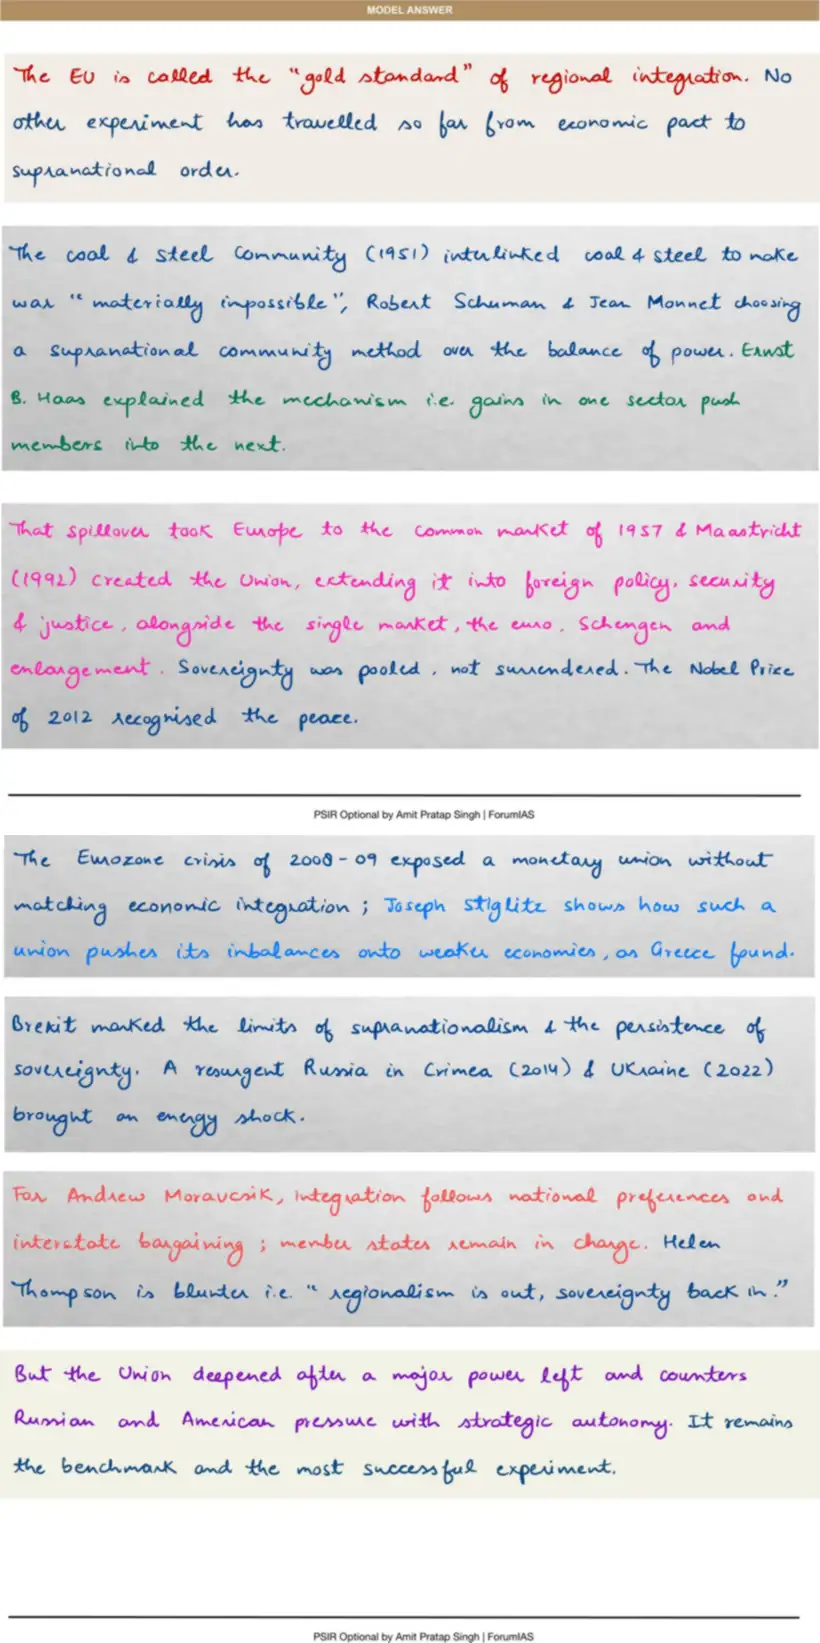 MODEL ANSWER
The EU is called the "gold standard" of regional integration. No
other experiment has travelled so far from economic pact to
supranational order.
The coal & steel Community (1951) interlinked coal & steel to make
war "materially impossible", Robert Schuman & Jean Monnet choosing
a supranational community method over the balance of power. Ernst
B. Haas explained the mechanism i.e. gains in one sector push
members into the next.
That spillover took Europe to the common market of 1957 & Maastricht
(1992) created the Union, extending it into foreign policy, security
& justice, alongside the single market, the euro, Schengen and
enlargement. Sovereignty was pooled, not surrendered. The Nobel Prize
of 2012 recognised the peace.
PSIR Optional by Amit Pratap Singh | ForumIAS
The Eurozone crisis of 2008-09 exposed a monetary union without
matching economic integration; Joseph Stiglitz shows how such a
union pushes its imbalances onto weaker economies, as Greece found.
Brexit marked the limits of supranationalism & the persistence of
sovereignty. A resurgent Russia in Crimea (2014) & Ukraine (2022)
brought an energy shock.
For Andrew Moravcsik, integration follows national preferences and
interstate bargaining; member states remain in charge. Helen
Thompson is blunter i.e. "regionalism is out, sovereignty back in."
But the Union deepened after a major power left and counters
Russian and American pressure with strategic autonomy. It remains
the benchmark and the most successful experiment.
PSIR Optional by Amit Pratap Singh | ForumIAS